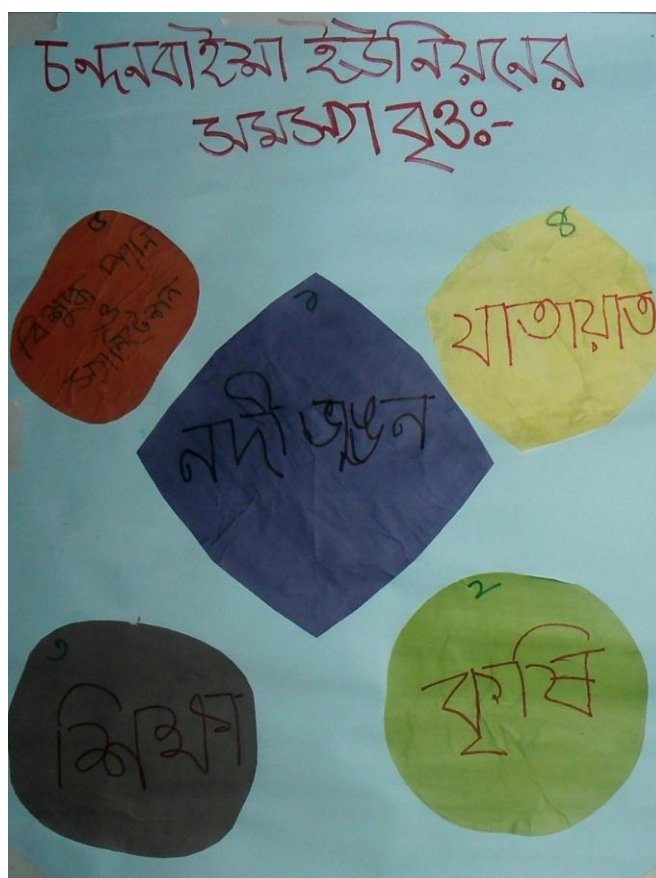 চন্দনবাইশা ইউনিয়নের
সমস্যা বৃত্তঃ-
৫
বিশুদ্ধ পানি
ও
স্যানিটেশন
১
নদী ভাঙ্গন
৪
যাতায়াত
৩
শিক্ষা
২
কৃষি